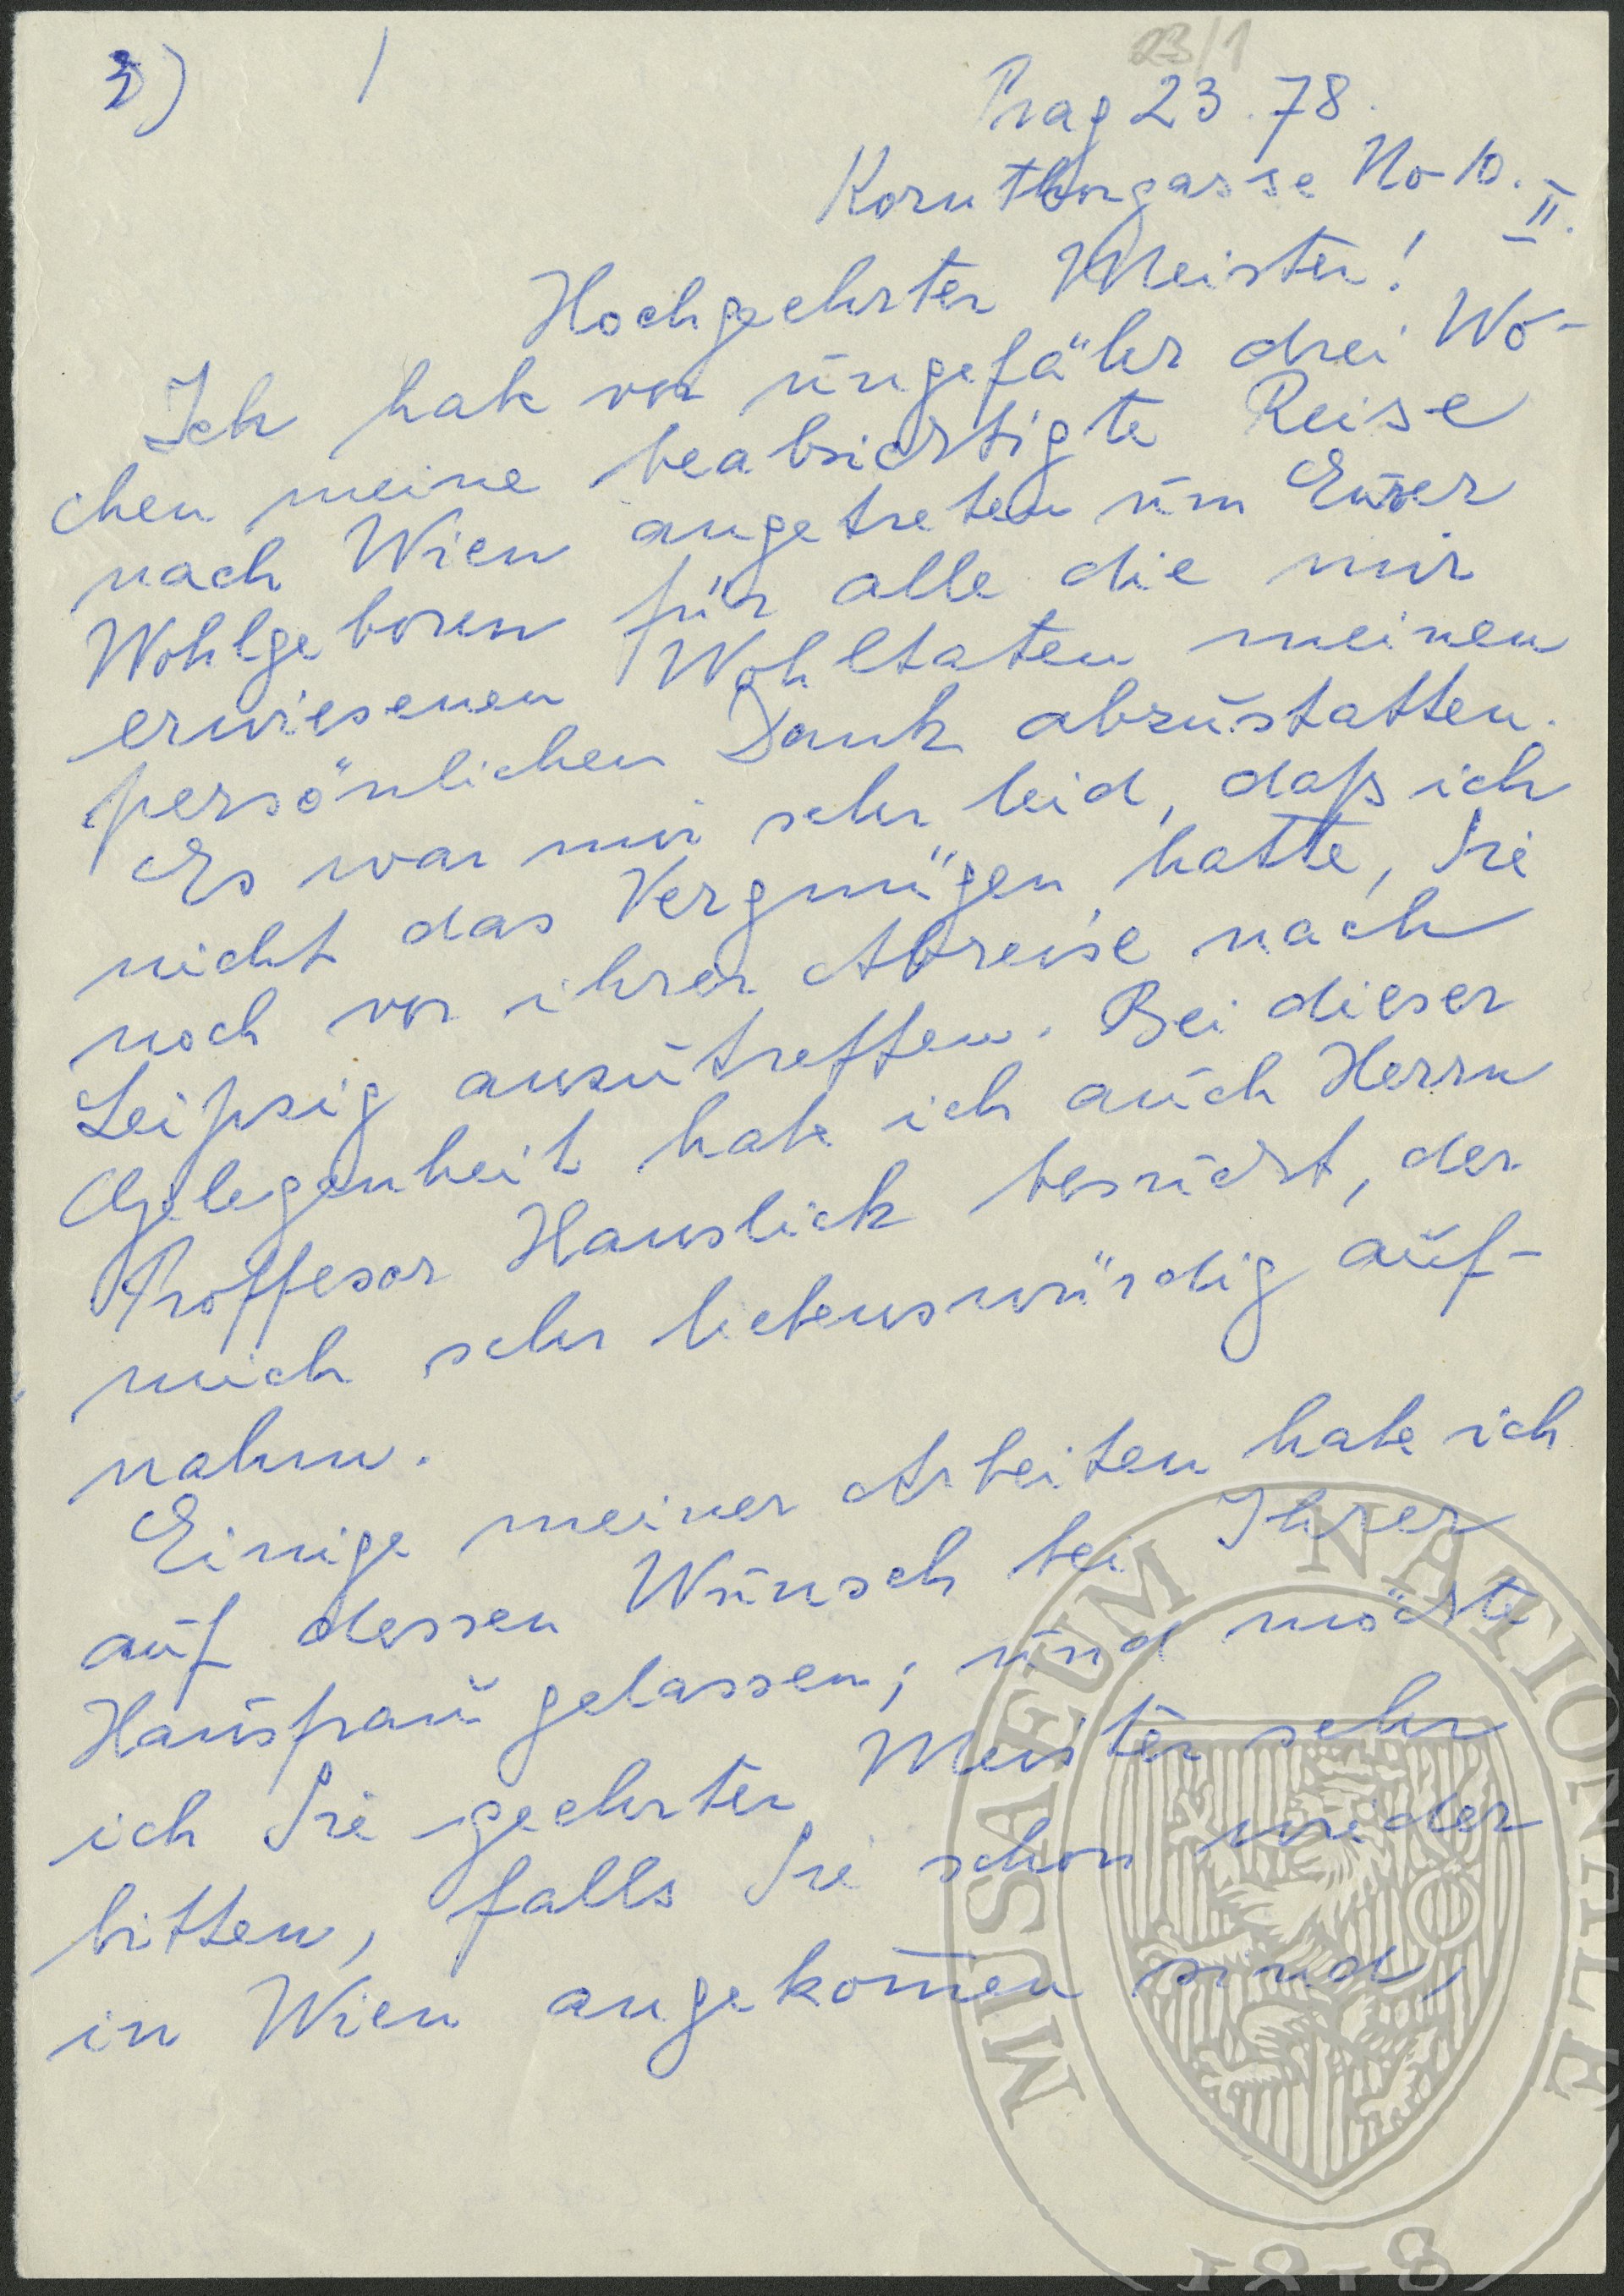 23/1
3) /
Prag 23. 78.
Kornthorgasse No 10. II.
Hochgeehrter Meister!
Ich habe vor ungefähr drei Wo-
chen meine beabsichtigte Reise
nach Wien angetreten um Euer
Wohlgeboren für alle die mir
erwiesenen Wohltaten meinen
persönlichen Dank abzustatten.
Es war mir sehr leid, daß ich
nicht das Vergnügen hatte, Sie
noch vor ihrer Abreise nach
Leipzig anzutreffen. Bei dieser
Gelegenheit habe ich auch Herrn
Proffesor Hanslick besucht, der
mich sehr liebenswürdig auf-
nahm.
Einige meiner Arbeiten habe ich
auf dessen Wunsch bei Ihrer
Hausfrau gelassen; und möchte
ich Sie geehrter Meister sehr
bitten, falls Sie schon wieder
in Wien angekom̄en sind,
MUSAEUM NATIONALE
1818